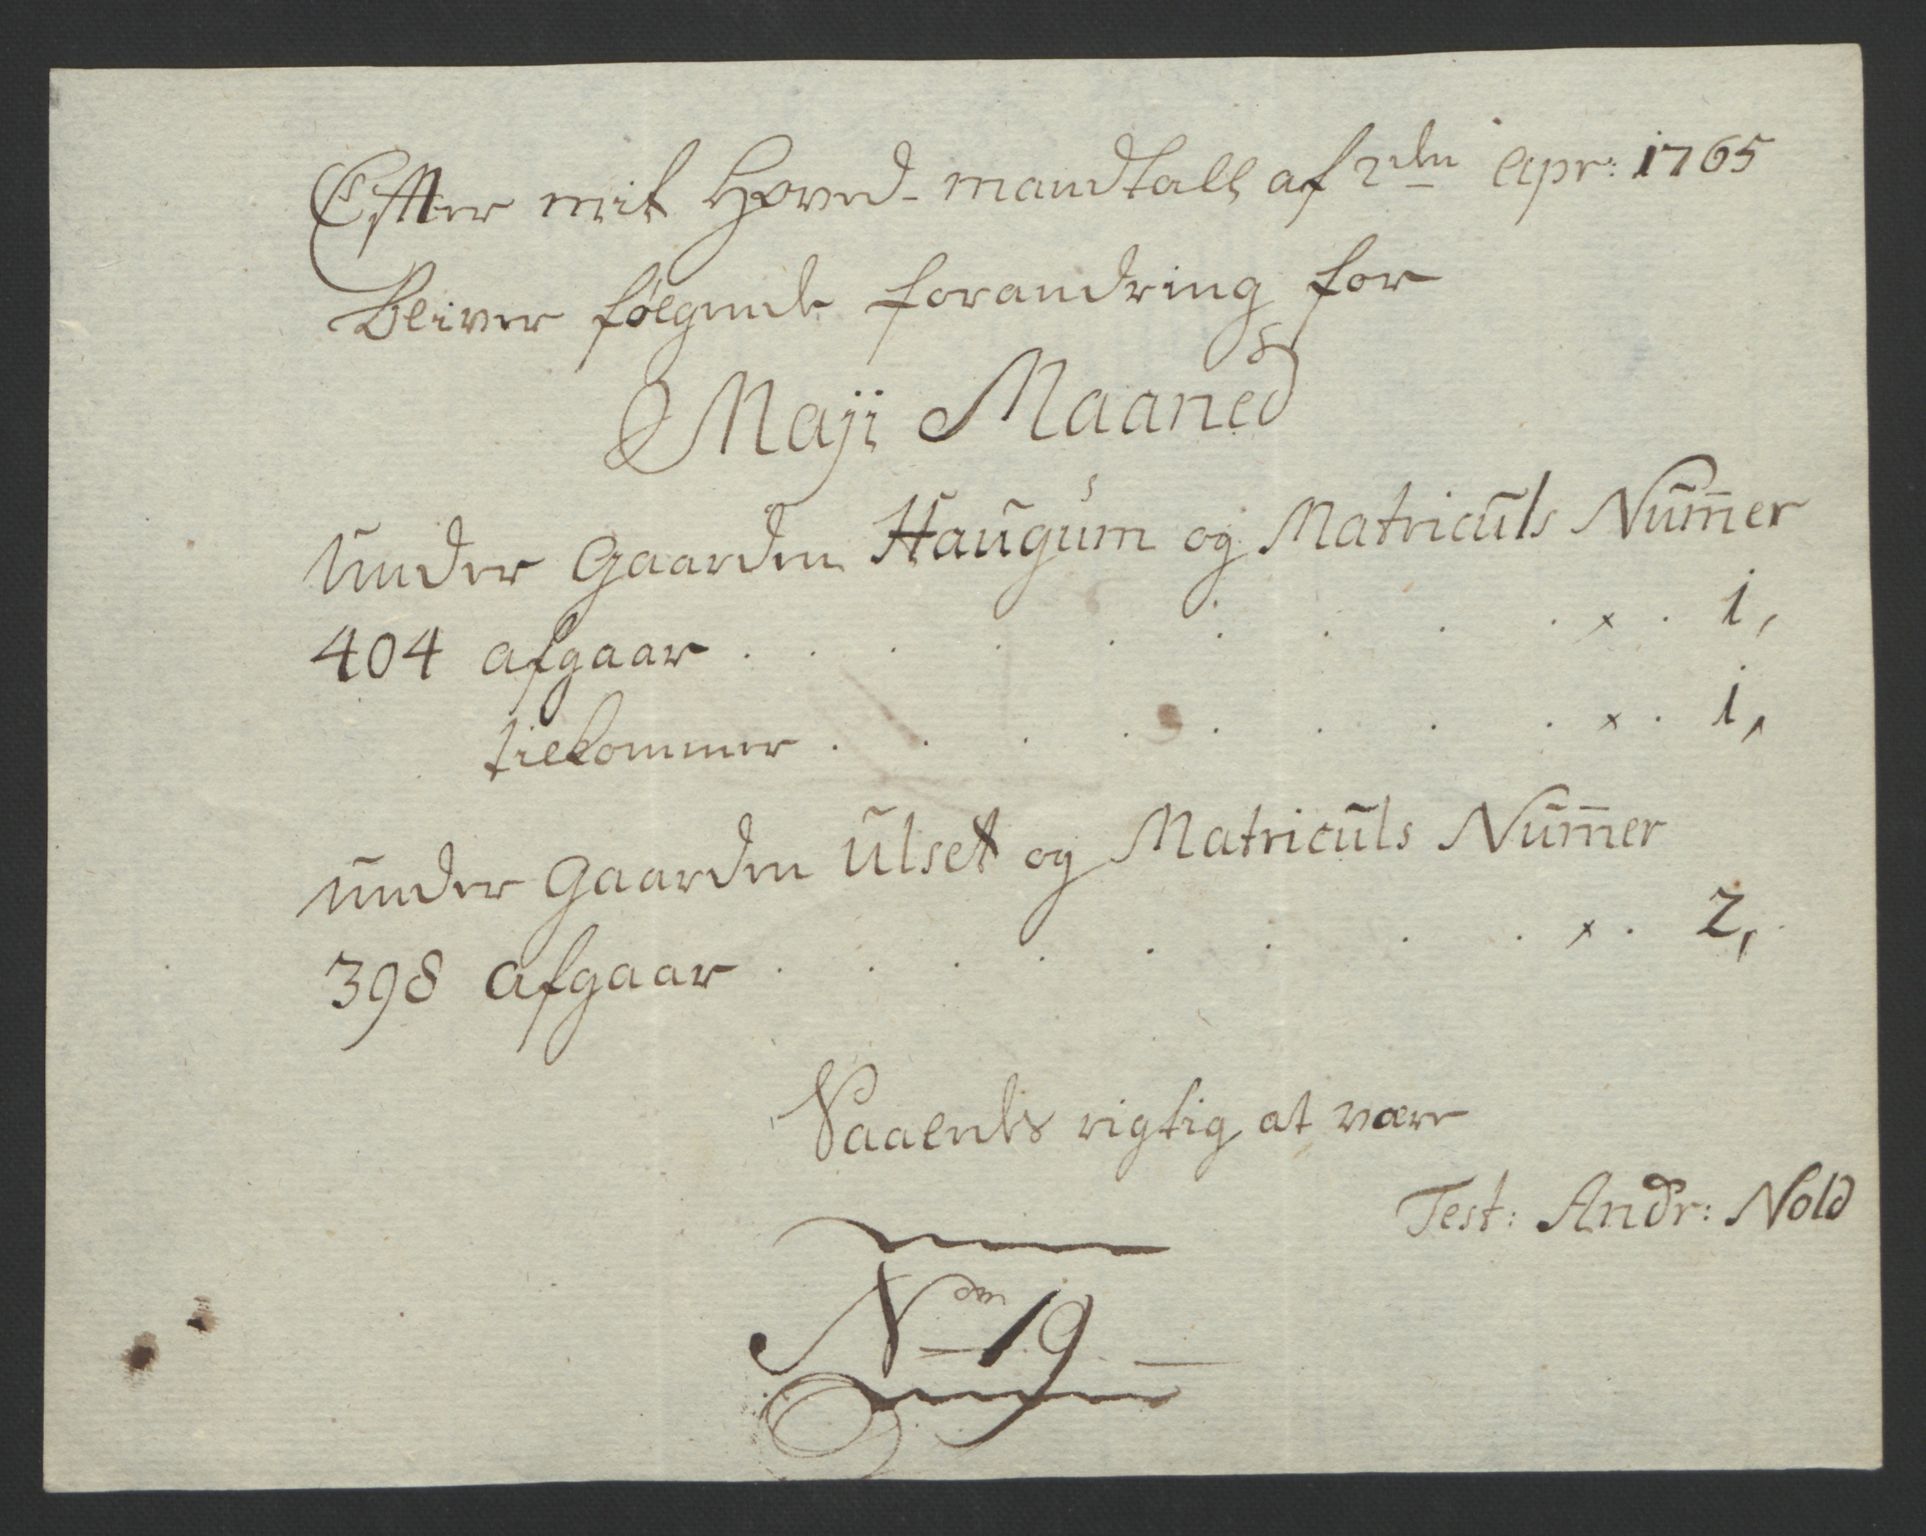 Efter mit Hoved-mandtall af 2den Apr: 1765
Bliver følgende forandring for
Maji Maaned
Under Gaarden Haugum og Matriculs Num̄er
404 afgaar . . . . . . . . x . 1,
tilkommer . . . . . . . . x . 1,
Under Gaarden Ulset og Matriculs Num̄er
398 afgaar . . . . . . . . x . 2,
Saaledes rigtig at være
Test: Andr: Nold
No 19